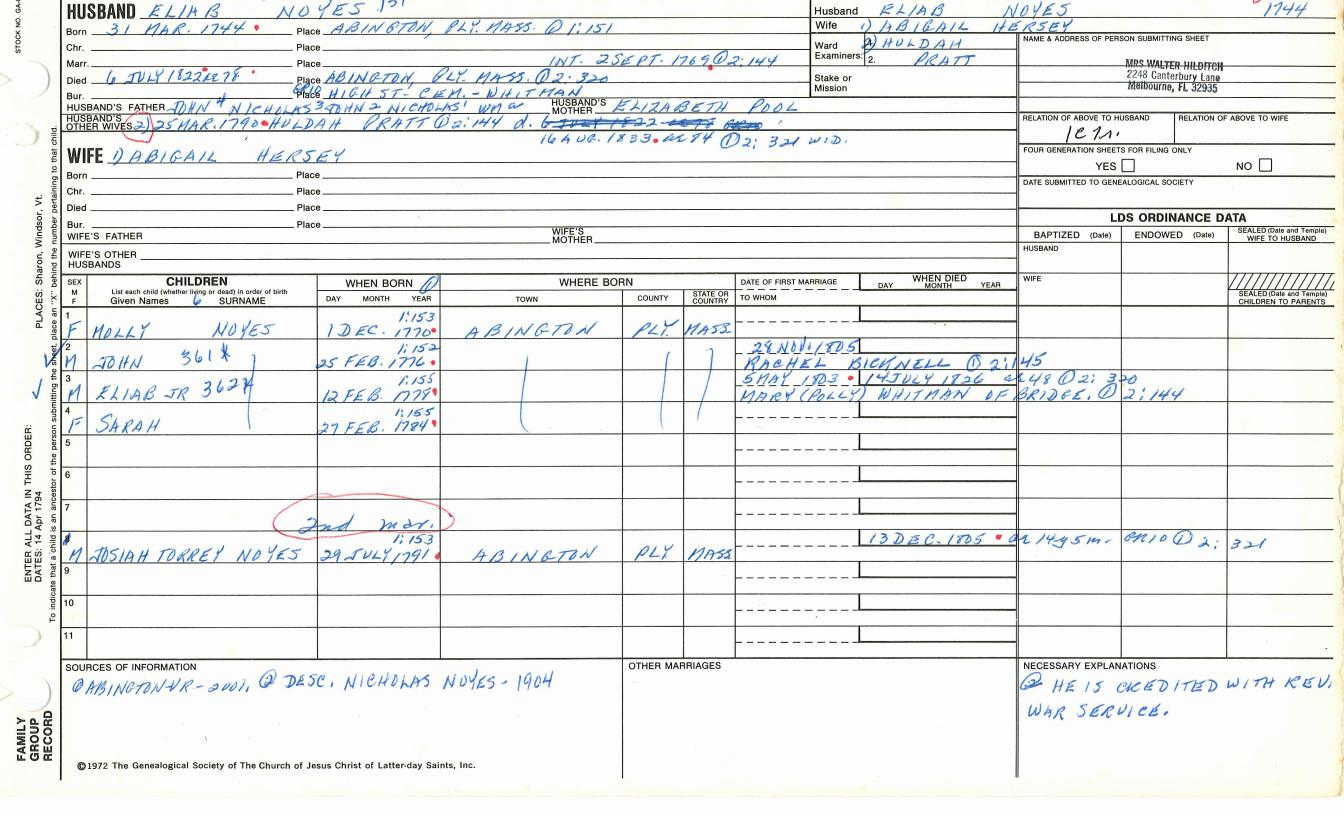 HUSBAND ELIAB NOYES 131
Born 31 MAR. 1744 Place ABINGTON, PLY. MASS. ① 1:151
Chr. Place
Marr. Place INT. 2 SEPT. 1769 ① 2:144
Died 6 JULY 1822 ae 78 Place ABINGTON, PLY. MASS. ① 2:320
Bur. Place HIGH ST- CEM.- WHITMAN
HUSBAND'S FATHER JOHN⁴ NICHOLAS³ JOHN² NICHOLAS¹ WM
HUSBAND'S MOTHER ELIZABETH POOL
HUSBAND'S OTHER WIVES 2) 25 MAR. 1790 HULDAH PRATT ① 2:144 d. 6 JULY 1822 ae 78 GR10
16 AUG. 1833. ae 84 ① 2: 321 WID.
WIFE 1) ABIGAIL HERSEY
Born Place
Chr. Place
Died Place
Bur. Place
WIFE'S FATHER
WIFE'S MOTHER
WIFE'S OTHER HUSBANDS
Husband ELIAB NOYES 1744
Wife 1) ABIGAIL HERSEY
Ward Examiners: 2) HULDAH
2. PRATT
Stake or Mission
NAME & ADDRESS OF PERSON SUBMITTING SHEET
MRS WALTER HILDITCH
2248 Canterbury Lane
Melbourne, FL 32935
RELATION OF ABOVE TO HUSBAND
RELATION OF ABOVE TO WIFE
FOUR GENERATION SHEETS FOR FILING ONLY
YES NO
DATE SUBMITTED TO GENEALOGICAL SOCIETY
LDS ORDINANCE DATA
BAPTIZED (Date) ENDOWED (Date) SEALED (Date and Temple) WIFE TO HUSBAND
HUSBAND
WIFE
SEALED (Date and Temple) CHILDREN TO PARENTS
SEX M F
CHILDREN
List each child (whether living or dead) in order of birth
Given Names 6 SURNAME
WHEN BORN ①
DAY MONTH YEAR
WHERE BORN
TOWN COUNTY STATE OR COUNTRY
DATE OF FIRST MARRIAGE
TO WHOM
WHEN DIED
DAY MONTH YEAR
1 1:153
F MOLLY NOYES 1 DEC. 1770 ABINGTON PLY. MASS
2 1:152 28 NOV. 1805
M JOHN 361 25 FEB. 1776 RACHEL BICKNELL ① 2:145
3 1:155 5 MAY 1803 14 JULY 1826 ae 48 ① 2: 320
M ELIAB JR 362 12 FEB. 1778 MARY (POLLY) WHITMAN OF BRIDGE. ① 2:144
4 1:155
F SARAH 27 FEB. 1784
5
6
7
2nd mar.
8 1:153 13 DEC. 1805 ae 14 y 5 m. GR10 ① 2: 321
M JOSIAH TORREY NOYES 29 JULY 1791 ABINGTON PLY MASS
9
10
11
SOURCES OF INFORMATION
① ABINGTON VR - 2001, ② DESC. NICHOLAS NOYES - 1904
OTHER MARRIAGES
NECESSARY EXPLANATIONS
② HE IS CREDITED WITH REV.
WAR SERVICE.
©1972 The Genealogical Society of The Church of Jesus Christ of Latter-day Saints, Inc.
STOCK NO. GA-
PLACES: Sharon, Windsor, Vt.
ENTER ALL DATA IN THIS ORDER:
DATES: 14 Apr 1794
To indicate that a child is an ancestor of the person submitting the sheet, place an "X" behind the number pertaining to that child.
FAMILY GROUP RECORD